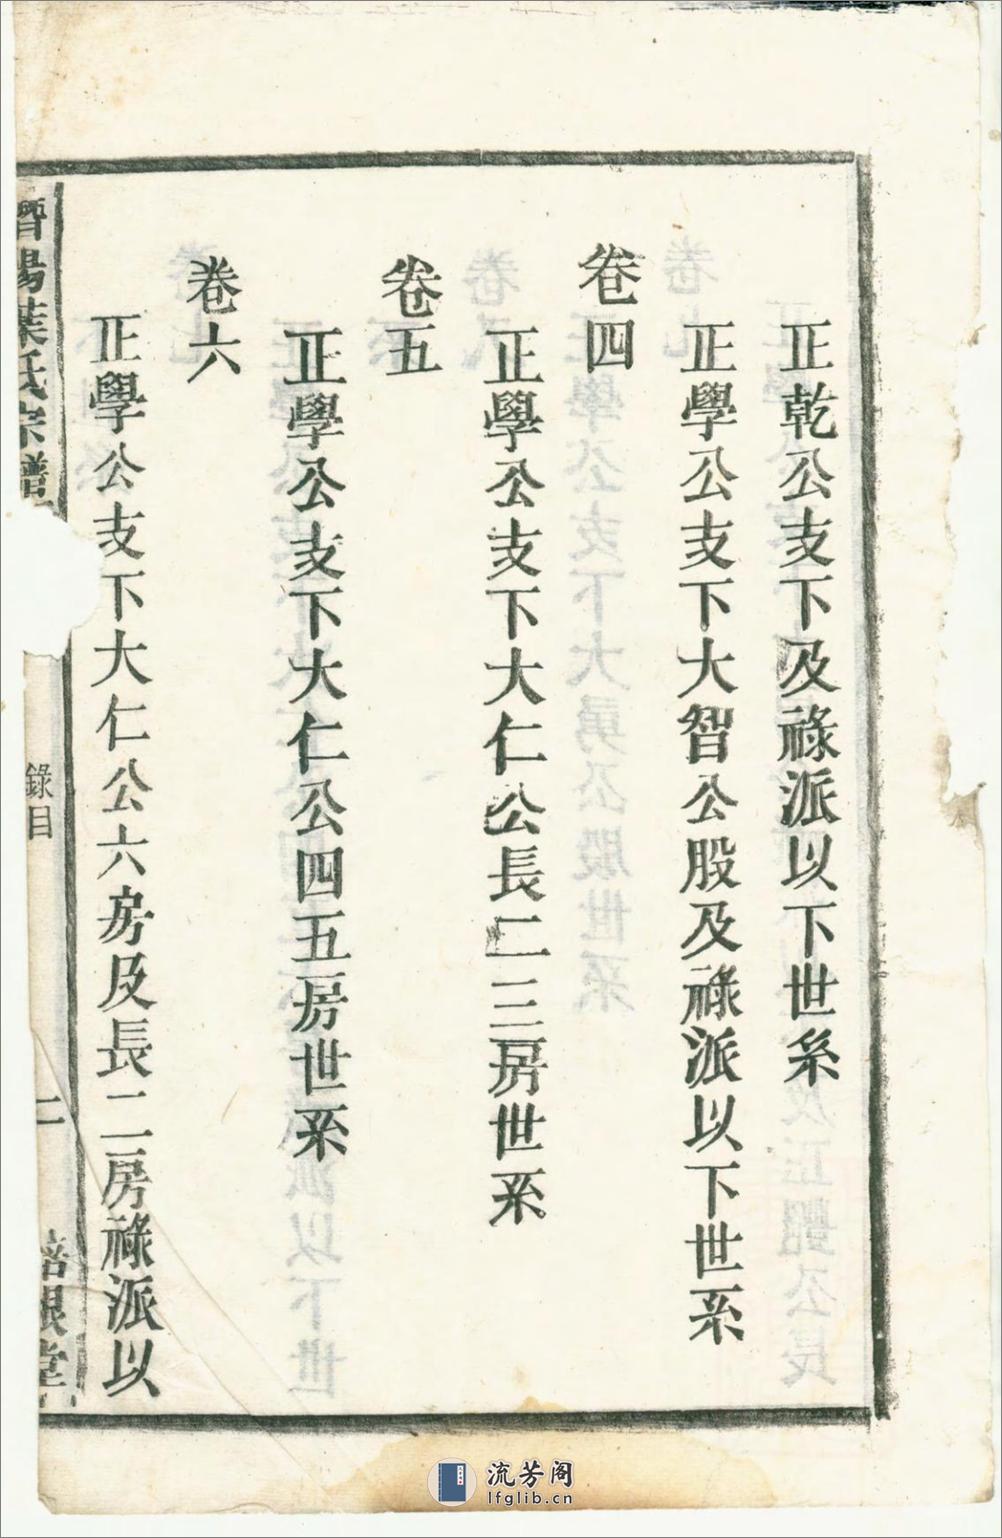 正乾公支下及祿派以下世系
正學公支下大智公股及祿派以下世系
卷四
正學公支下大仁公長二三房世系
卷五
正學公支下大仁公四五房世系
卷六
正學公支下大仁公六房及長二房祿派以
陽葉氏宗譜
錄目
二
培根堂
流芳阁
lfglib.cn